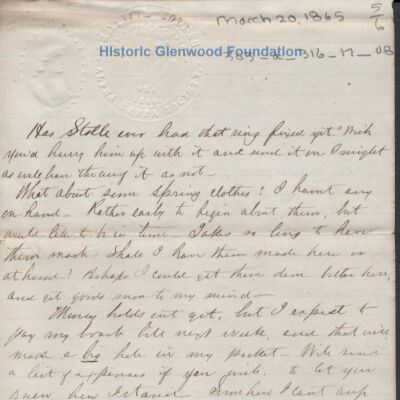 March 20, 1865
5/6
Historic Glenwood Foundation
316-17-UB
Has Stolle ever had that ring fixed yet? Wish
you'd hurry him up with it and send it on. I might
as well have the ring it as not—
What about some spring clothes? I havnt any
on hand— Rather early to begin about them, but
would like to be in time— Takes so long to have
them made— Shall I have them made here or
at home? Perhaps I could get them done better here,
and get goods more to my mind—
Money holds out yet, but I expect to
pay my board bill next week, and that will
make a big hole in my pocket— Will send
a list of expenses if you wish, to let you
know how I stand— Somehow I can't